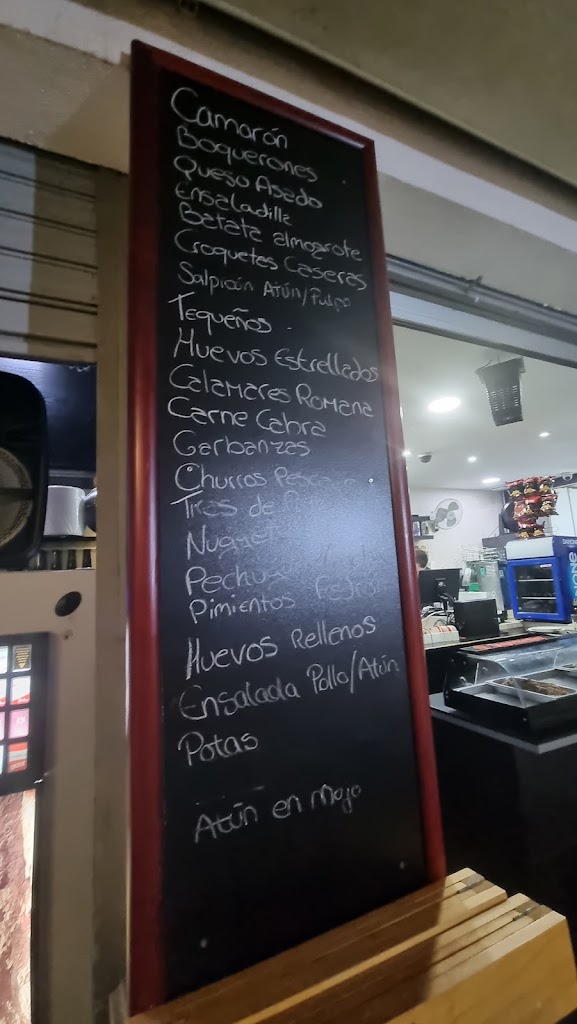 Camarón
Boquerones
Queso Asado
Ensaladilla
Batata almogrote
Croquetas Caseras
Salpicón Atún/Pulpo
Tequeños
Huevos Estrellados
Calamares Romana
Carne Cabra
Garbanzas
Churros
Tiras de
Pimientos
Huevos Rellenos
Ensalada Pollo/Atún
Potas
Atún en mojo